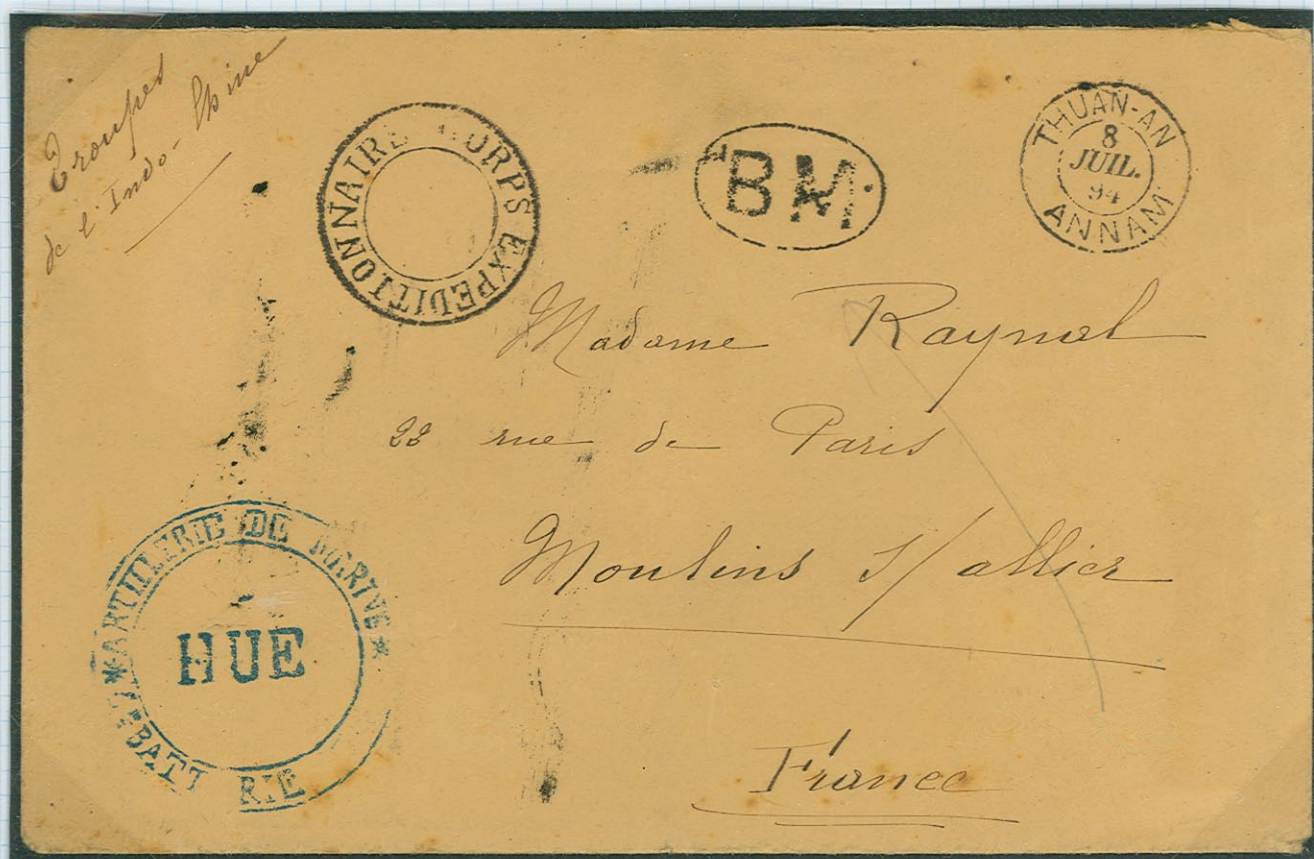 Troupes
de l'Indo-Chine
CORPS EXPEDITIONNAIRE
BM
THUAN-AN
8
JUIL.
94
ANNAM
Madame Raynal
22 rue de Paris
Moulins s/ allier
France
ARTILLERIE DE MARINE
HUE
BATT RIE